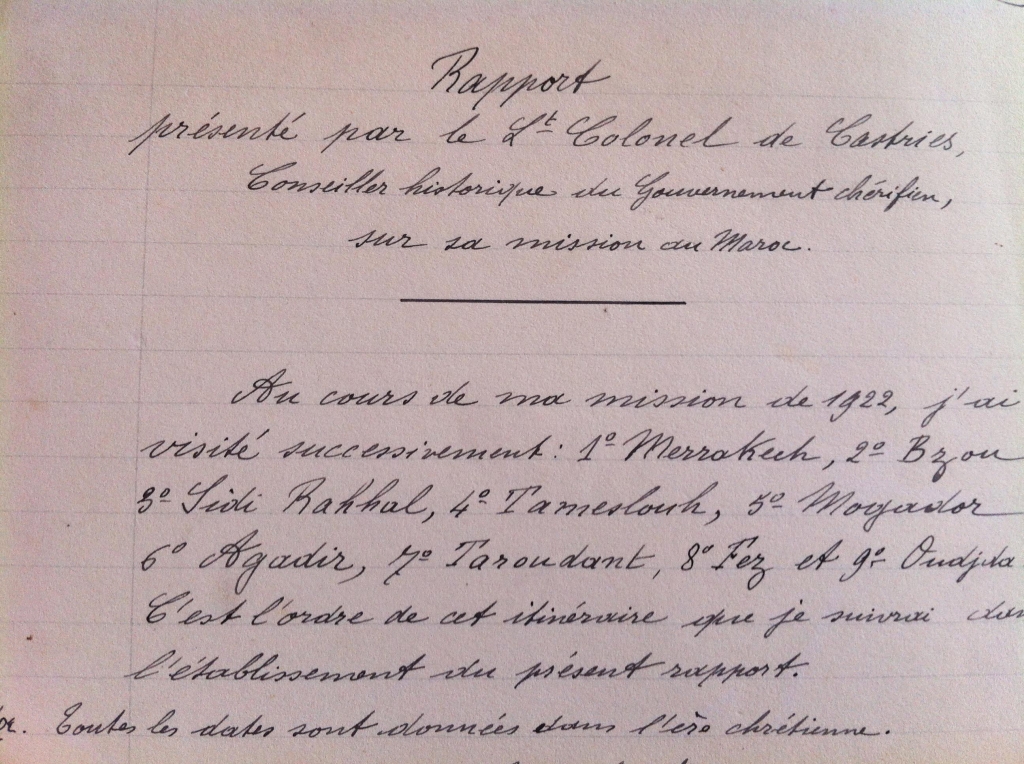 Rapport
présenté par le Lt Colonel de Castries,
Conseiller historique du Gouvernement chérifien,
sur sa mission au Maroc.
Au cours de ma mission de 1922, j'ai
visité successivement : 1º Merrakech, 2º Bzou
3º Sidi Rahhal, 4º Tameslouh, 5º Mogador
6º Agadir, 7º Taroudant, 8º Fez et 9º Oudjda
C'est l'ordre de cet itinéraire que je suivrai
l'établissement du présent rapport.
Toutes les dates sont données dans l'ère chrétienne.